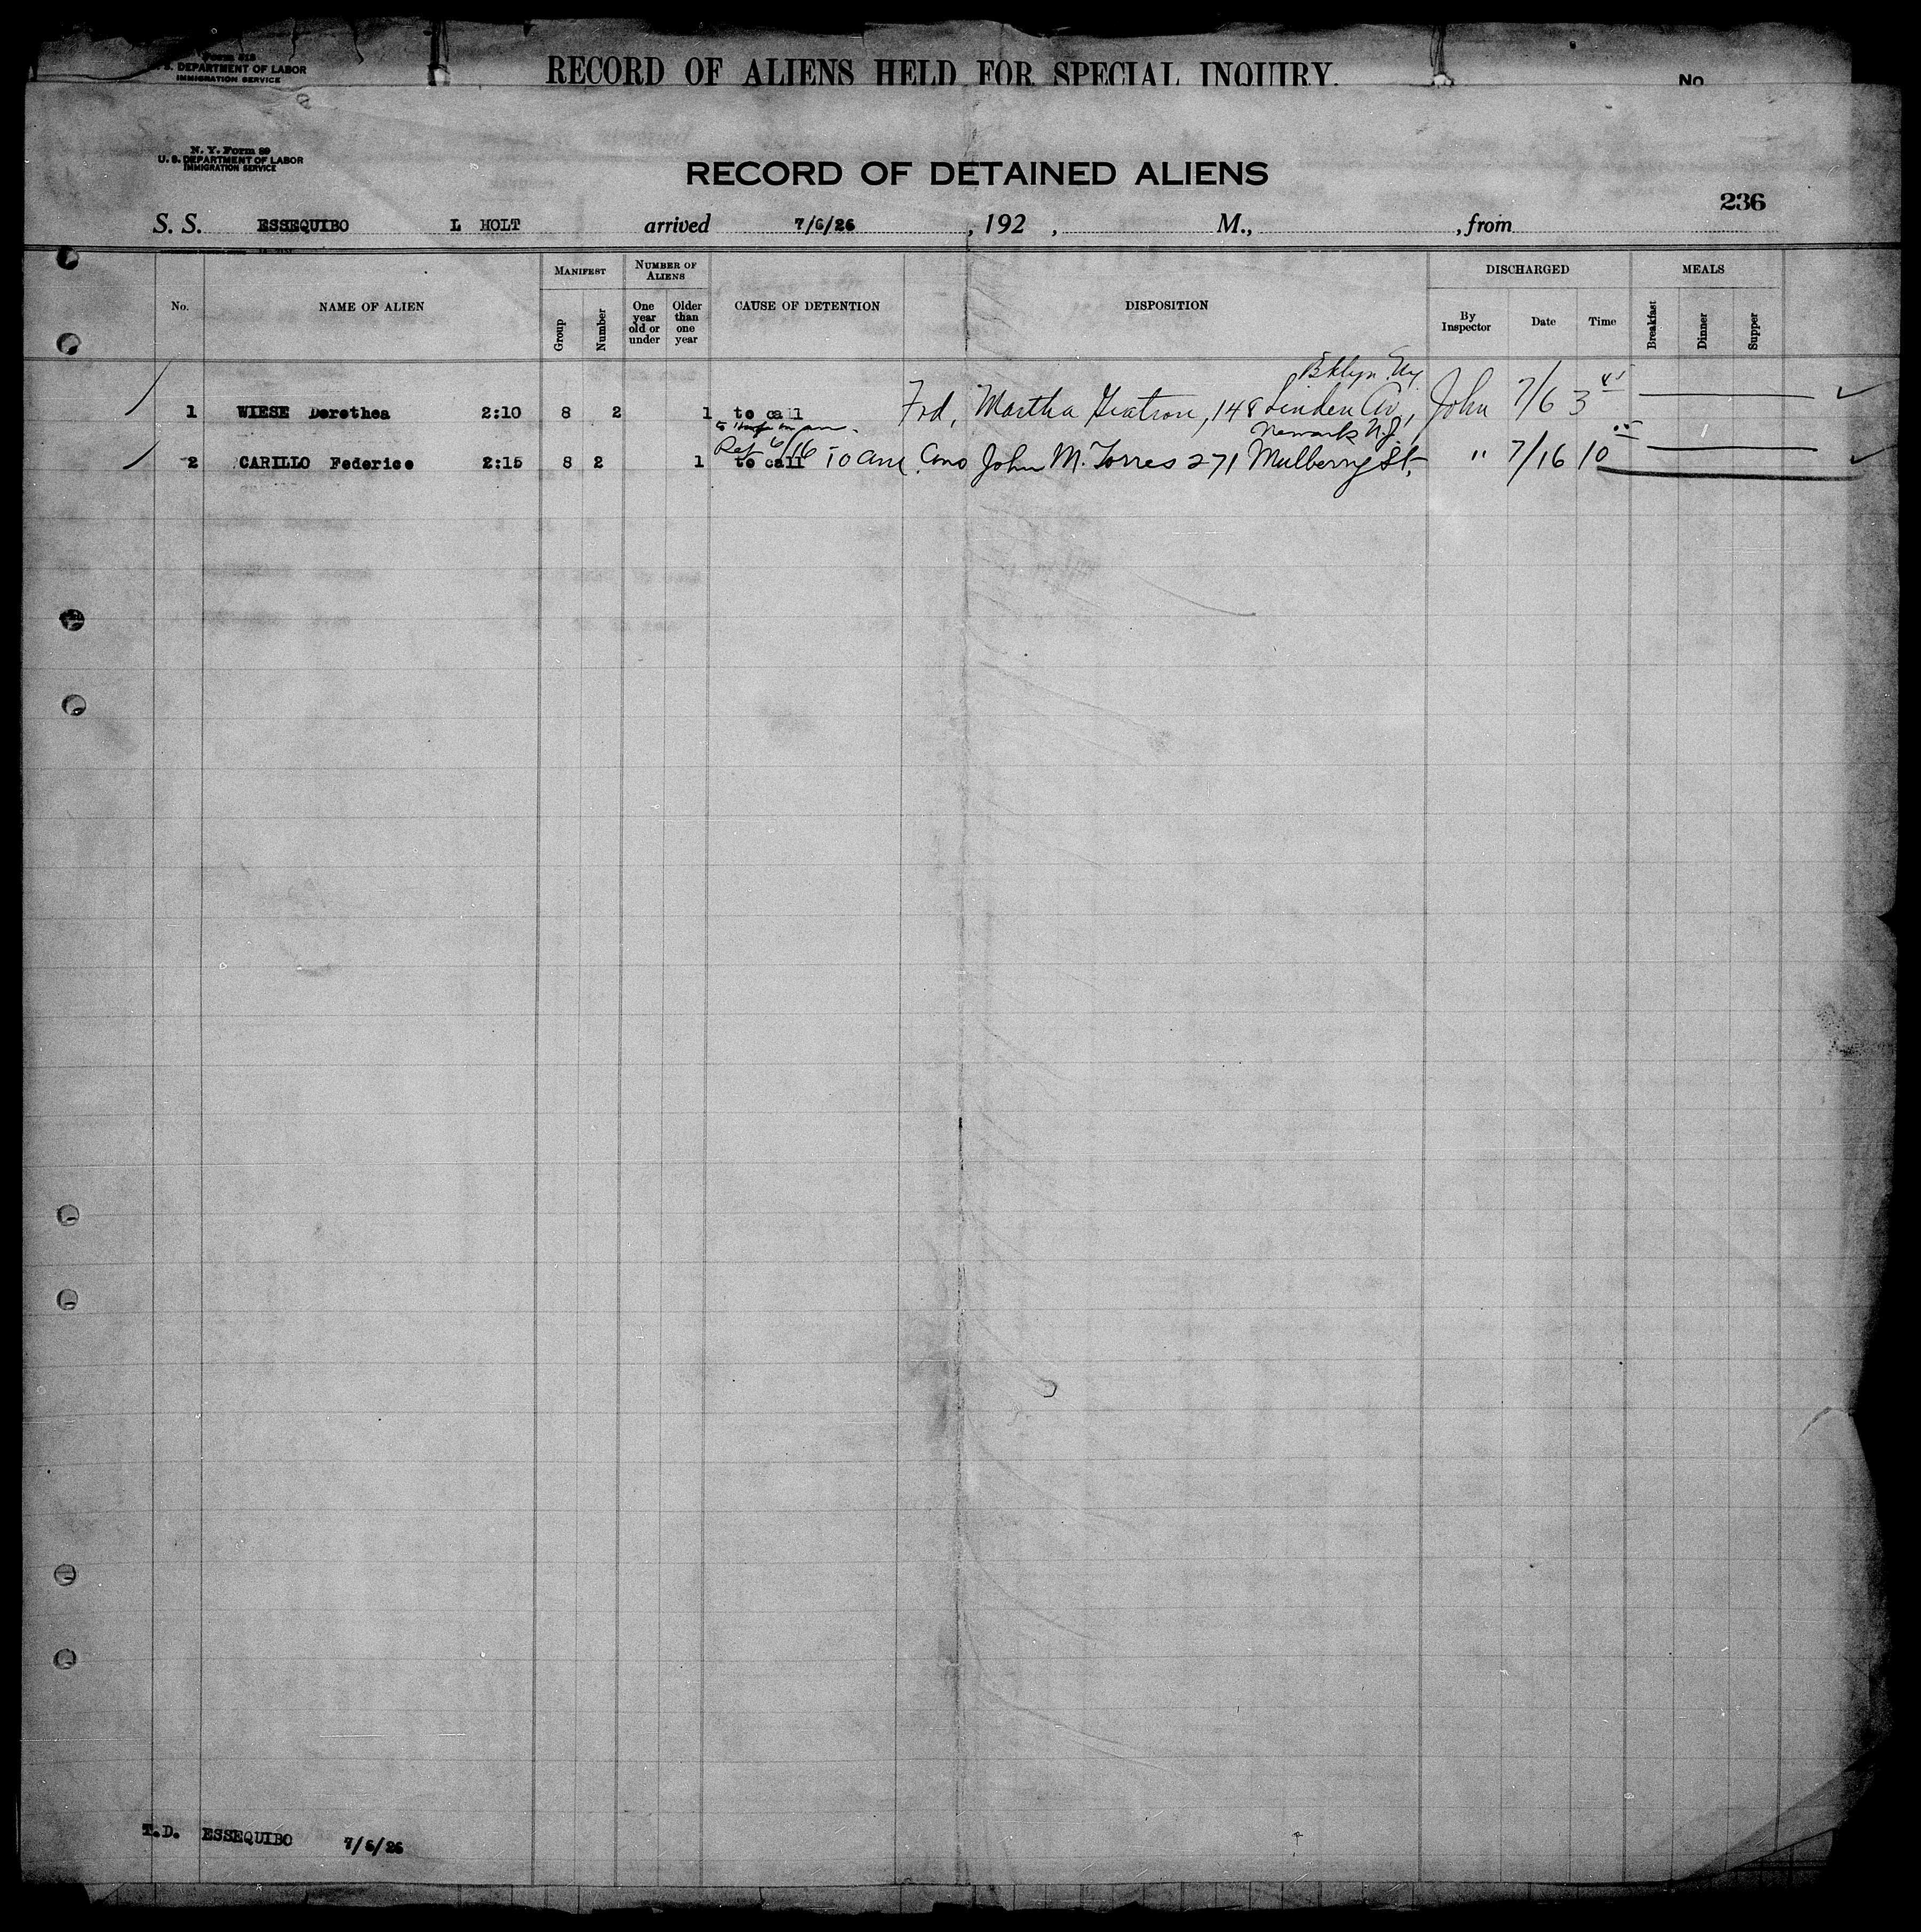 Form 518
U. S. DEPARTMENT OF LABOR
IMMIGRATION SERVICE
RECORD OF ALIENS HELD FOR SPECIAL INQUIRY.
No.
N. Y. Form 89
U. S. DEPARTMENT OF LABOR
IMMIGRATION SERVICE
RECORD OF DETAINED ALIENS
236
S. S. ESSEQUIBO L HOLT arrived 7/6/26, 192 , M., , from
MANIFEST NUMBER OF ALIENS DISCHARGED MEALS
No. NAME OF ALIEN Group Number One year old or under Older than one year CAUSE OF DETENTION DISPOSITION By Inspector Date Time Breakfast Dinner Supper
Bklyn Ny
1 WIESE Dorothea 2:10 8 2 1 to call Frd, Martha 148 Linden Av, John 7/6 3 45
Newark N.J.
2 CARILLO Federico 2:15 8 2 1 to call 10 am John M. Torres 271 Mulberry St, " 7/16 10
T.D. ESSEQUIBO 7/6/26